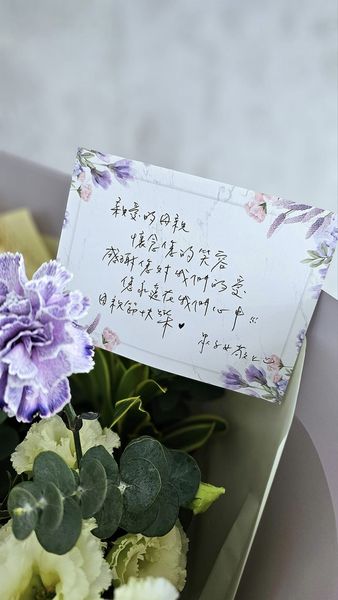 親愛的母親
懷念您的笑容
感謝您對我們的愛
您永遠在我們心中!!
母親節快樂♥
眾子女敬上